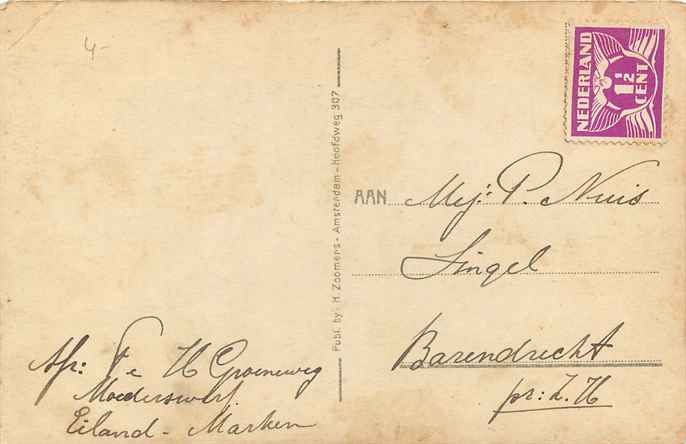 4-
NEDERLAND
1½
CENT
Publ. by: H. Zoomers - Amsterdam - Hoofdweg 307
AAN Mej: P. Nuis
Singel
Barendrecht
pr: Z. H
Afz: Fe H Groeneweg
Moederswerf.
Eiland - Marken